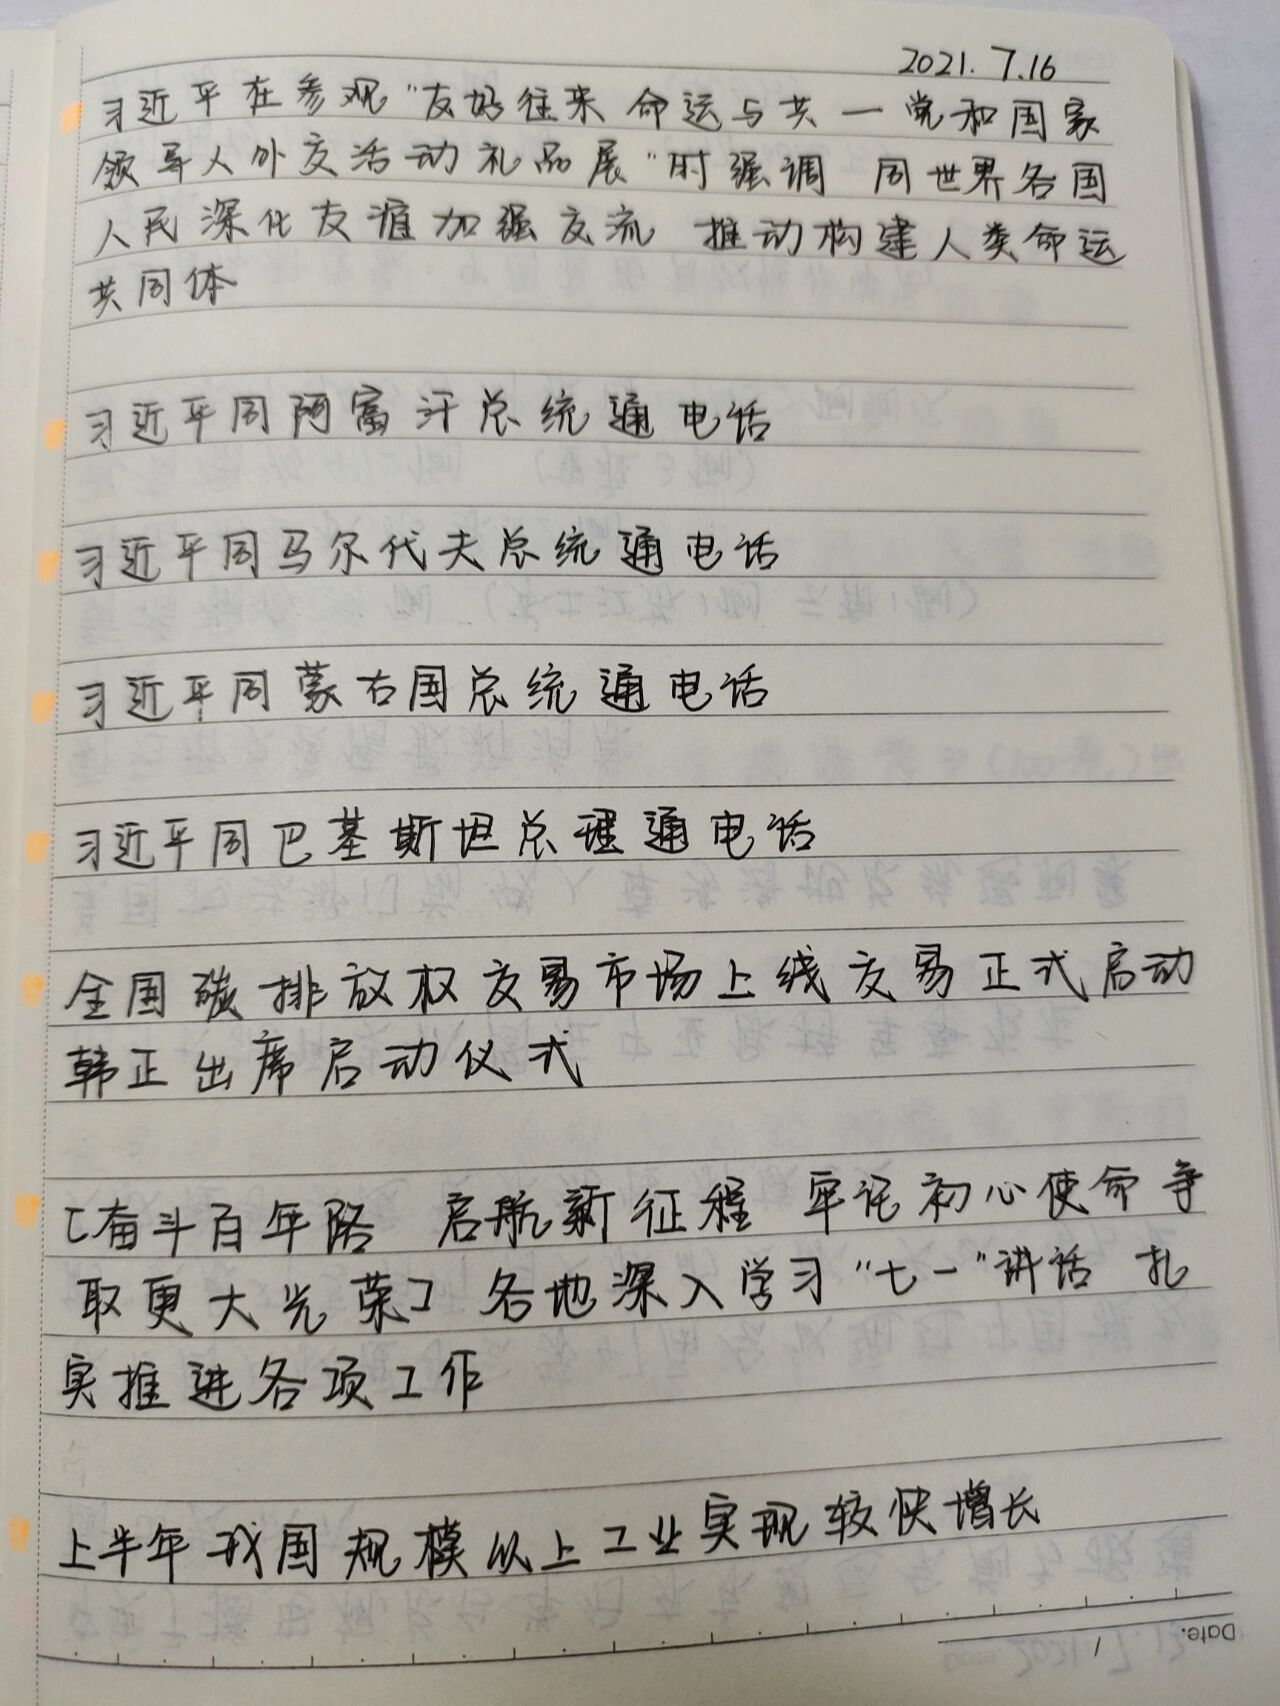 2021.7.16
习近平在参观"友好往来 命运与共—党和国家
领导人外交活动礼品展"时强调 同世界各国
人民深化友谊加强交流 推动构建人类命运
共同体
习近平同阿富汗总统通电话
习近平同马尔代夫总统通电话
习近平同蒙古国总统通电话
习近平同巴基斯坦总理通电话
全国碳排放权交易市场上线交易正式启动
韩正出席启动仪式
[奋斗百年路 启航新征程 牢记初心使命争
取更大光荣] 各地深入学习"七一"讲话 扎
实推进各项工作
上半年我国规模以上工业实现较快增长
Date. /